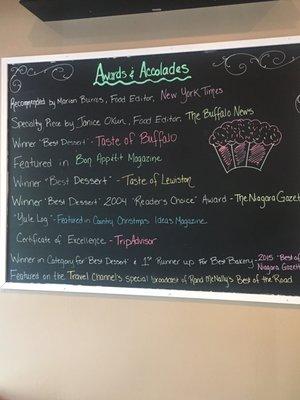 Awards & Accolades
Recommended by Marian Burros, Food Editor, New York Times
Specialty Piece by Janice Okun, Food Editor, The Buffalo News
Winner "Best Dessert" - Taste of Buffalo
Featured in Bon Appétit Magazine
Winner "Best Dessert" - Taste of Lewiston
Winner "Best Dessert" 2004 "Readers Choice" Award - The Niagara Gazet
"Yule Log" - Featured in Country Christmas Ideas Magazine
Certificate of Excellence - TripAdvisor
Winner in Category for Best Dessert & 1st Runner up For Best Bakery - 2015 "Best of
Niagara Gazett
Featured on the Travel Channel's special broadcast of Rand McNally's Best of the Road